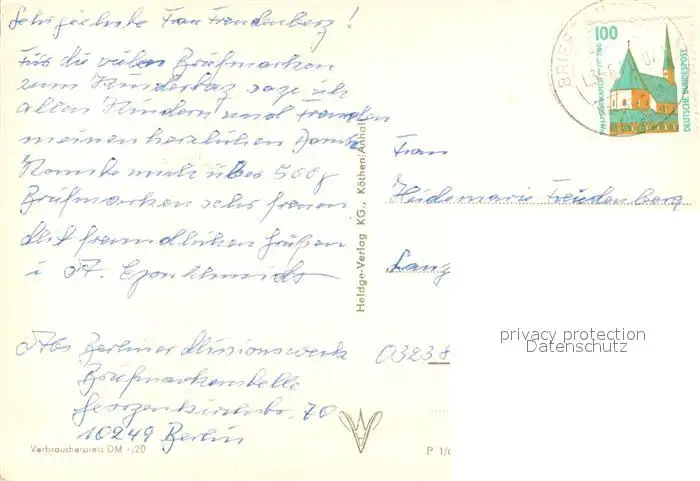 Sehr geehrte Frau Freudenberg!
Für die vielen Briefmarken
zum Kindertag sage ich
allen Kindern und Freunden
meinen herzlichen Dank.
Konnte mich über 500g
Briefmarken sehr freuen
Mit freundlichen Grüßen
i A.
Abs Berliner Missionswerk
Briefmarkenstelle
Georgenkirchstr. 70
10249 Berlin
Verbraucherpreis DM -,20
Heldge-Verlag KG., Köthen/Anhalt
100
WALLFAHRTSKAPELLE ALTÖTTING
DEUTSCHE BUNDESPOST
BRIEF
Frau
Heidemarie Freudenberg
Lang
0323
P 1/
privacy protection
Datenschutz